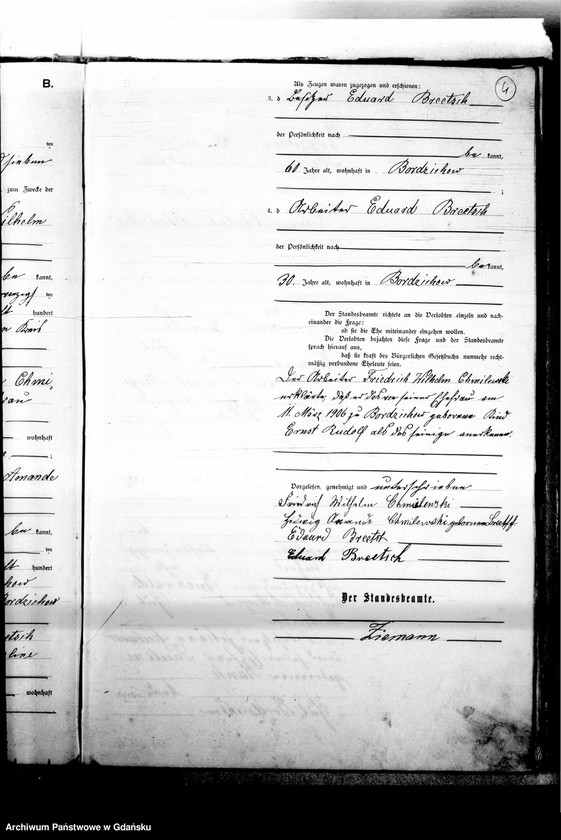 B.
ten
sieben
zum Zwecke der
ilhelm
be kannt,
ten
hundert
n Kreis
Chmi-
rau
wohnhaft
;
Amande
be kannt,
ten
lt hundert
kow
Bordzichow
etsch
line
wohnhaft
4
Als Zeugen waren zugezogen und erschienen:
3. d Besitzer Eduard Breetsch
der Persönlichkeit nach
be kannt,
60 Jahre alt, wohnhaft in Bordzichow
;
4. d Arbeiter Eduard Breetsch
der Persönlichkeit nach
be kannt,
30 Jahre alt, wohnhaft in Bordzichow
Der Standesbeamte richtete an die Verlobten einzeln und nach-
einander die Frage:
ob sie die Ehe miteinander eingehen wollen.
Die Verlobten bejahten diese Frage und der Standesbeamte
sprach hierauf aus,
daß sie kraft des Bürgerlichen Gesetzbuchs nunmehr recht-
mäßig verbundene Eheleute seien.
Der Arbeiter Friedrich Wilhelm Chmilewski
erklärte, daß er das von seiner Ehefrau am
11. März 1906 zu Bordzichow geborene Kind
Ernst Rudolf als das seinige anerkenne.
Vorgelesen, genehmigt und unterschrieben
Friedrich Wilhelm Chmilewski
Hedwig Amande Chmilewski geborene Breetsch
Eduard Breetsch
Eduard Breetsch
Der Standesbeamte.
Ziemann
Archiwum Państwowe w Gdańsku